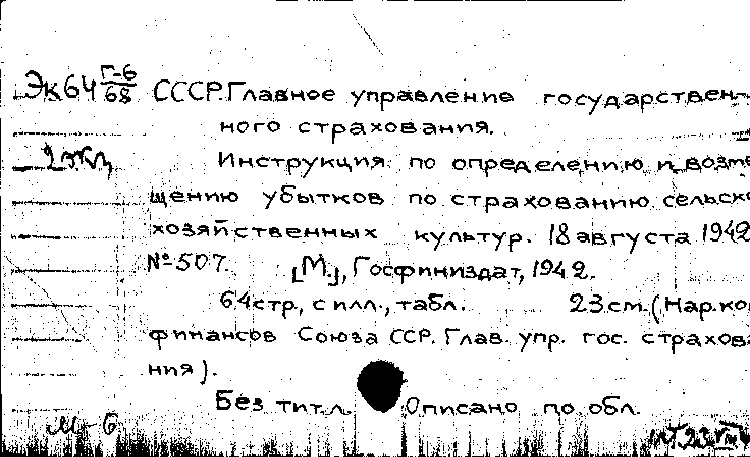 Эк64 Г-6/68 СССР. Главное управление государствен-
ного страхования.
2 экз
Инструкция по определению и возме-
щению убытков по страхованию сельско-
хозяйственных культур. 18 августа 1942
№ 507. [М.], Госфиниздат, 1942.
64 стр., с илл., табл. 23 см. (Нар. ком
финансов Союза ССР. Глав. упр. гос. страхова-
ния).
Без тит. л. Описано по обл.
М-6